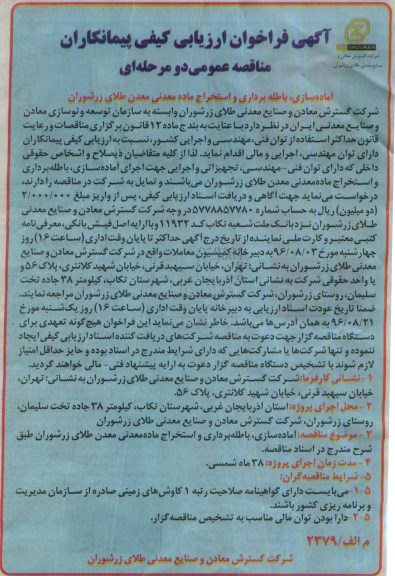 آگهی فراخوان ارزیابی کیفی پیمانکاران
مناقصه عمومی دو مرحله‌ای
آماده‌سازی، باطله برداری و استخراج ماده معدنی معدن طلای زرشوران
شرکت گسترش معادن و صنایع معدنی طلای زرشوران وابسته به سازمان توسعه و نوسازی معادن
و صنایع معدنی ایران در نظر دارد با عنایت به بند ج ماده ۱۲ قانون برگزاری مناقصات و رعایت
قانون حداکثر استفاده از توان فنی، مهندسی و اجرایی کشور، نسبت به ارزیابی کیفی پیمانکاران
دارای توان مهندسی، اجرایی و مالی اقدام نماید. لذا از کلیه متقاضیان ذیصلاح و اشخاص حقوقی
داخلی که دارای توان فنی-مهندسی، تجهیزاتی و اجرایی جهت اجرای آماده‌سازی، باطله‌برداری
و استخراج ماده‌معدنی معدن طلای زرشوران می‌باشند و تمایل به شرکت در مناقصه را دارند،
درخواست می‌نماید جهت آگاهی و دریافت اسناد ارزیابی کیفی، پس از واریز مبلغ ۲/۰۰۰/۰۰۰
(دو میلیون) ریال به حساب شماره ۵۷۷۸۸۵۷۷۸۰ در وجه شرکت گسترش معادن و صنایع معدنی
طلای زرشوران نزد بانک ملت شعبه تکاب کد ۱۱۹۳۲ و با ارایه اصل فیش بانکی، معرفی‌نامه
کتبی معتبر و کارت ملی نماینده از تاریخ درج آگهی حداکثر تا پایان وقت اداری (ساعت ۱۶) روز
چهارشنبه مورخ ۹۶/۰۸/۰۳ به دبیرخانه کمیسیون معاملات واقع در شرکت گسترش معادن و صنایع
معدنی طلای زرشوران به نشانی: تهران، خیابان سپهبد قرنی، خیابان شهید کلانتری، پلاک ۵۶ و
یا واحد حقوقی شرکت به نشانی استان آذربایجان غربی، شهرستان تکاب، کیلومتر ۳۸ جاده تخت
سلیمان، روستای زرشوران، شرکت گسترش معادن و صنایع معدنی طلای زرشوران مراجعه نمایند.
ضمنا تاریخ عودت اسناد ارزیابی به دبیرخانه پایان وقت اداری (ساعت ۱۶) روز یک‌شنبه مورخ
۹۶/۰۸/۲۱ به همان آدرس‌ها می‌باشد. خاطر نشان می‌نماید این فراخوان هیچ‌گونه تعهدی برای
دستگاه مناقصه گزار جهت دعوت به مناقصه شرکت‌های دریافت کننده اسناد ارزیابی کیفی ایجاد
ننموده و تنها شرکت‌ها یا مشارکت‌هایی که دارای شرایط مندرج در اسناد بوده و حایز حداقل امتیاز
لازم شوند با تشخیص دستگاه مناقصه گزار جهت دعوت به ارایه پیشنهاد فنی-مالی خواهند گردید.
۱- نشانی کارفرما: شرکت گسترش معادن و صنایع معدنی طلای زرشوران به نشانی: تهران،
خیابان سپهبد قرنی، خیابان شهید کلانتری، پلاک ۵۶.
۲- محل اجرای پروژه: استان آذربایجان غربی، شهرستان تکاب، کیلومتر ۳۸ جاده تخت سلیمان،
روستای زرشوران، شرکت گسترش معادن و صنایع معدنی طلای زرشوران
۳- موضوع مناقصه: آماده‌سازی، باطله‌برداری و استخراج ماده‌معدنی معدن طلای زرشوران طبق
شرح مندرج در اسناد مناقصه.
۴- مدت زمان اجرای پروژه: ۳۸ ماه شمسی.
۵- شرایط مناقصه‌گران:
۵-۱- می‌بایست دارای گواهینامه صلاحیت رتبه ۱ کاوش‌های زمینی صادره از سازمان مدیریت
و برنامه ریزی کشور باشند.
۵-۲- دارا بودن توان مالی مناسب به تشخیص مناقصه‌گزار.
م الف/۲۳۷۹
شرکت گسترش معادن و صنایع معدنی طلای زرشوران